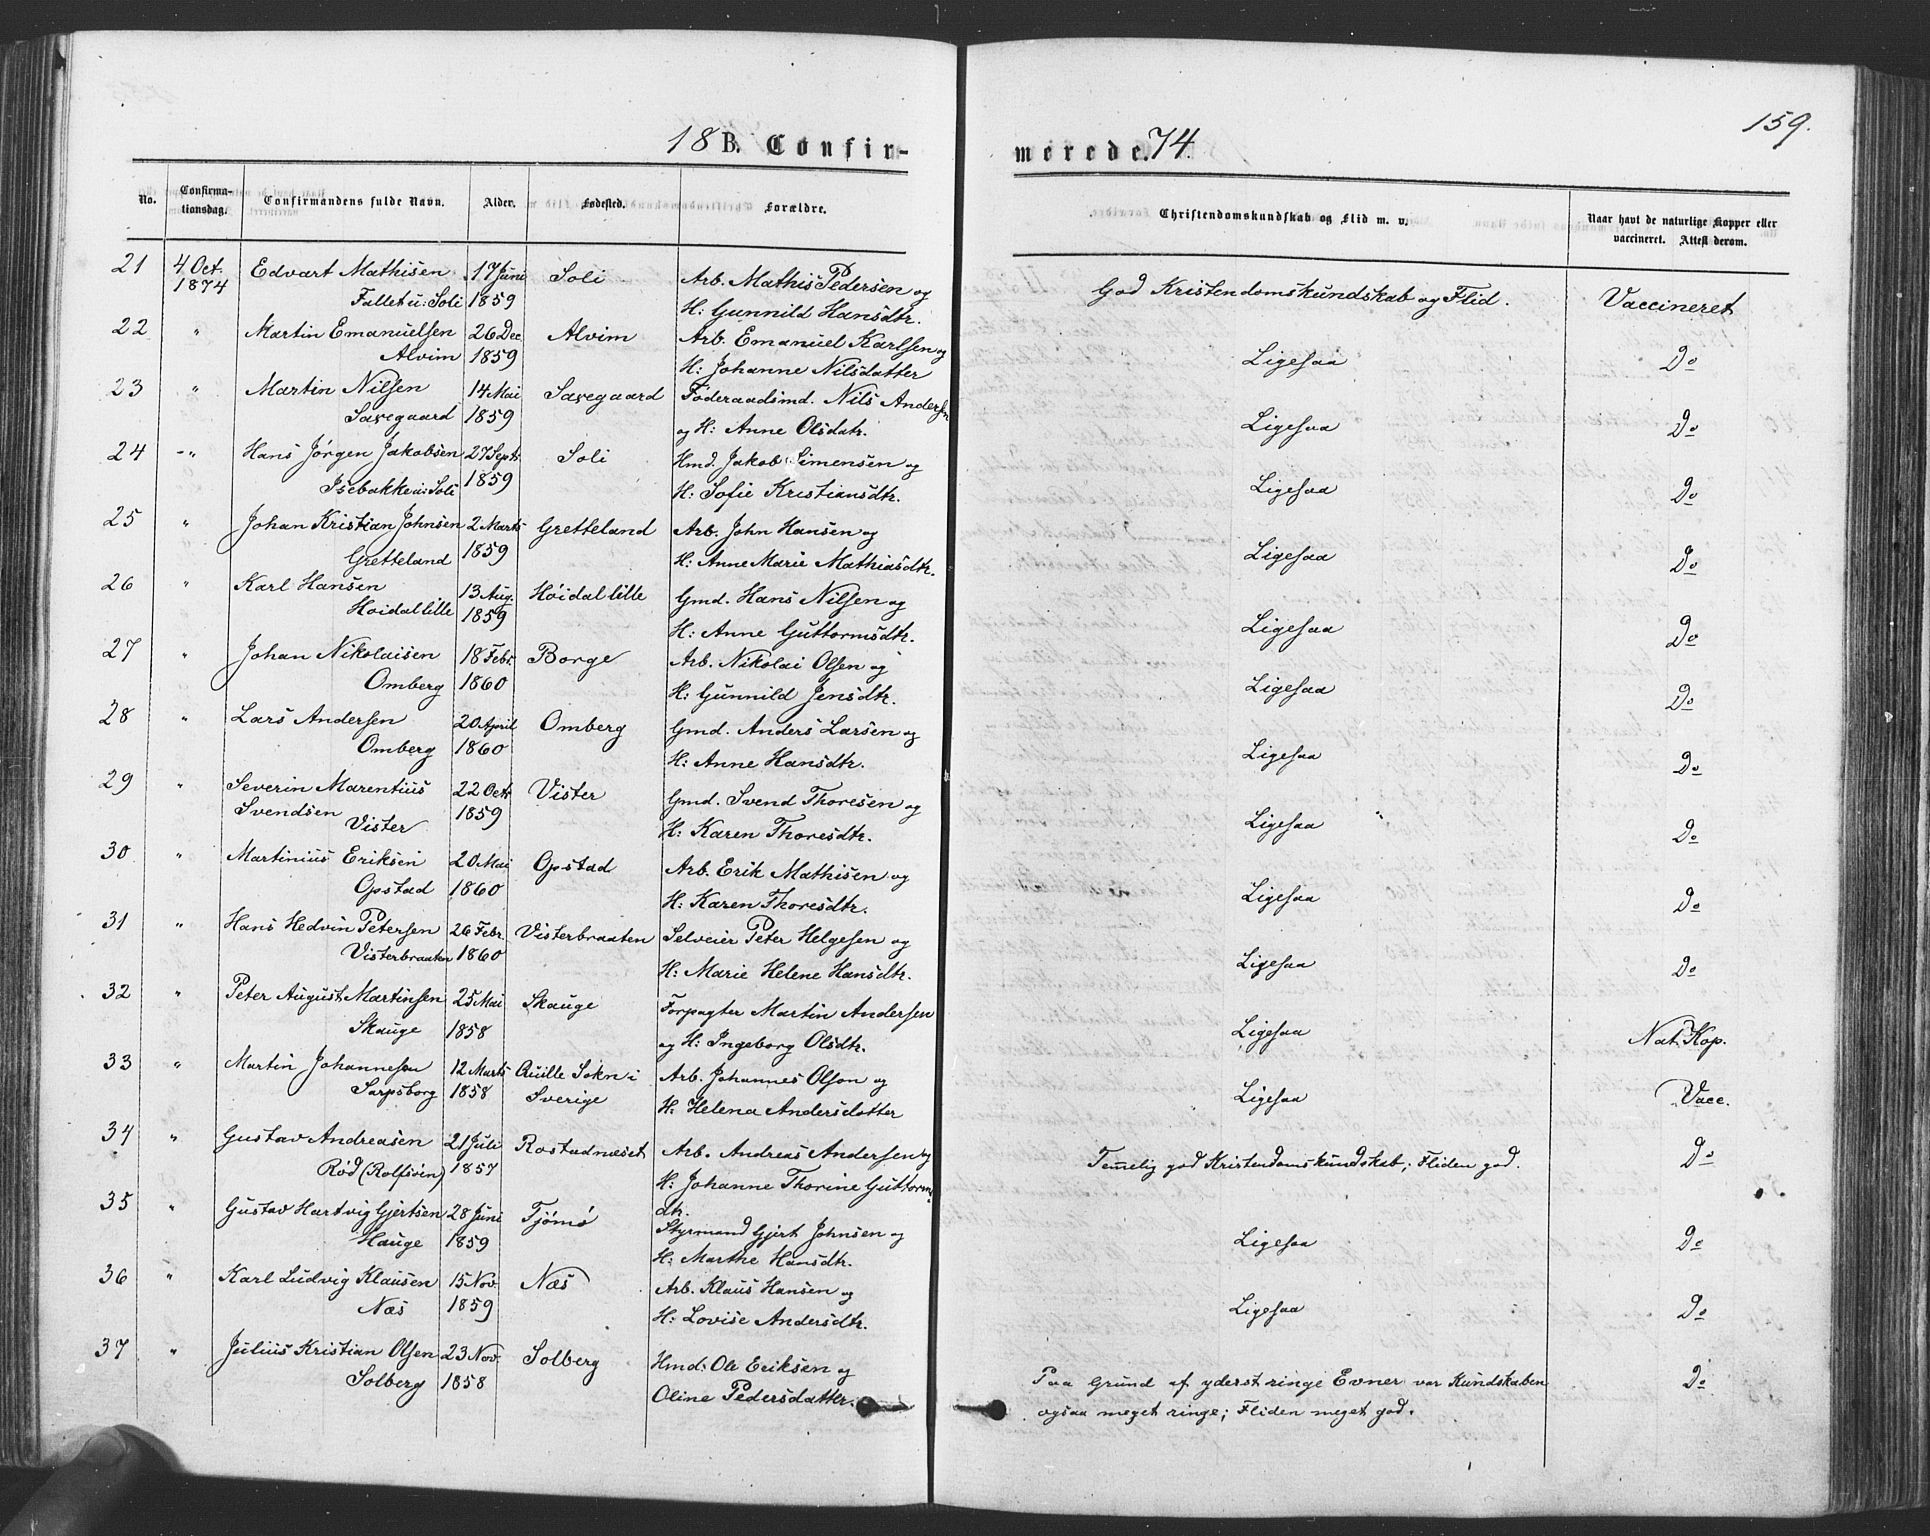 159.
18 B. Confir-
merede. 74.
No. Confirma-tionsdag. Confirmandens fulde Navn. Alder. Fødested. Forældre. Christendomskundskab og Flid m. v. Naar havt de naturlige Kopper eller vaccineret. Attest derom.
21 4 Oct. Edvart Mathisen 17 Juni Soli Arb. Mathis Pedersen og God Kristendomskundskab og Flid. Vaccineret
1874 Fallet u: Soli 1859 H: Gunnild Hansdtr.
22 " Martin Emanuelsen 26 Dec Alvim Arb. Emanuel Karlsen og Ligesaa Do
Alvim 1859 H: Johanne Nilsdatter
23 " Martin Nilsen 14 Mai Saxegaard Føderaadsmd. Nils Andersen Ligesaa Do
Saxegaard 1859 og H: Anne Olsdatr.
24 -" Hans Jørgen Jakobsen 27 Septr. Soli Hmd. Jakob Simensen og Ligesaa Do
Isebakke u: Soli 1859 H: Sofie Kristiansdtr.
25 " Johan Kristian Johnsen 2 Marts Gretteland Arb. John Hansen og Ligesaa Do
Gretteland 1859 H: Anne Marie Mathiasdtr.
26 " Karl Hansen 13 Aug. Høidal lille Gmd. Hans Nilsen og Ligesaa Do
Høidal lille 1859 H: Anne Guttormsdtr.
27 " Johan Nikolaisen 18 Febr. Borge Arb. Nikolai Olsen og Ligesaa Do
Omberg 1860 H: Gunnild Jensdtr.
28 " Lars Andersen 20 April Omberg Gmd. Anders Larsen og Ligesaa Do
Omberg 1860 H: Anne Hansdtr.
29 " Severin Marentius 22 Octr Vister Gmd. Svend Thoresen og Ligesaa " Do
Svendsen Vister 1859 H: Karen Thoresdtr.
30 " Martinius Eriksen 20 Mai Opstad Arb. Erik Mathisen og Ligesaa Do
Opstad 1860 H: Karen Thoresdtr.
31 " Hans Hedvin Petersen 26 Febr. Visterbraaten Selveier Peter Helgesen og Ligesaa Do
Visterbraaten 1860 H: Marie Helene Hansdtr.
32 " Peter August Martinsen 25 Mai Skauge Forpagter Martin Andersen Ligesaa Nat. Kop.
Skauge 1858 og H: Ingeborg Olsdtr.
33 " Martin Johannesen 12 Marts Quille Sokn i Arb. Johannes Olson og Ligesaa Vacc.
Sarpsborg 1858 Sverige H: Helena Andersdotter
34 " Gustav Andreasen 21 Juli Rostadnæset Arb. Andreas Andersen og Temelig god Kristendomskundskab; Fliden god. Do
Rød (Rolfsøen) 1857 H: Johanne Thorine Guttorms
dtr.
35 " Gustav Hartvig Gjertsen 28 Juni Tjømø Styrmand Gjert Johnsen og Ligesaa Do
Hauge 1859 H: Marthe Hansdtr.
36 " Karl Ludvig Klausen 15 Nov. Næs Arb. Klaus Hansen og Ligesaa Do
Næs 1859 H: Lovise Andersdtr.
37 " Julius Kristian Olsen 23 Nov. Solberg Hmd: Ole Eriksen og Paa Grund af yderst ringe Evner var Kundskaben Do
Solberg 1858 Oline Pedersdatter. ogsaa meget ringe; Fliden meget god.